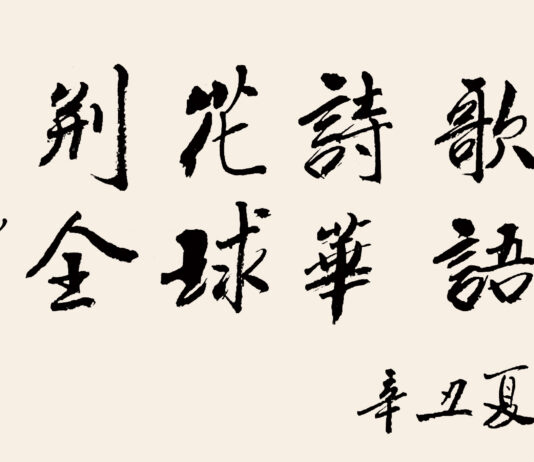 荆花詩歌
全球華語
辛丑夏